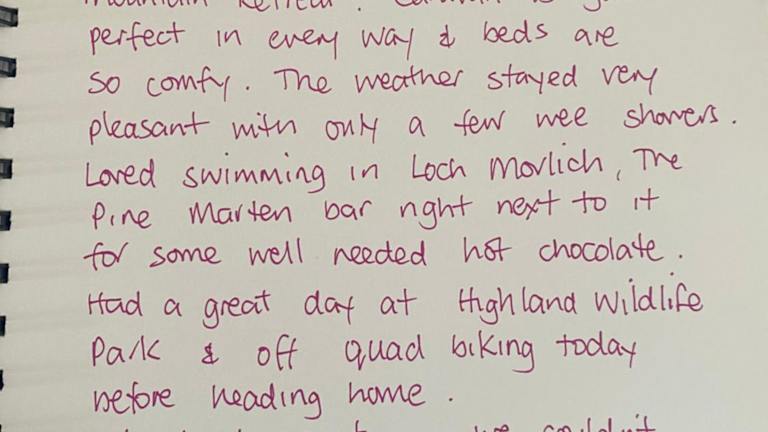 Mountain Retreat.
perfect in every way & beds are
so comfy. The weather stayed very
pleasant with only a few wee showers.
Loved swimming in Loch Morlich, The
Pine Marten bar right next to it
for some well needed hot chocolate.
Had a great day at Highland Wildlife
Park & off quad biking today
before heading home.
we couldn't